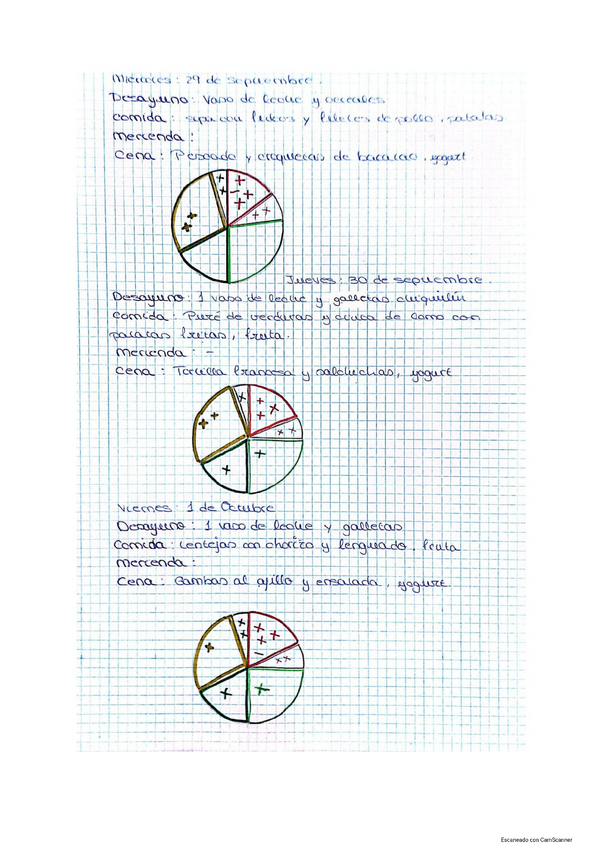 Miércoles: 29 de septiembre.
Desayuno: Vaso de leche y cereales
Comida: sopa con fideos y filetes de pollo, patatas
Merienda:
Cena: Pescado y croquetas de bacalao, yogurt
Jueves: 30 de septiembre.
Desayuno: 1 vaso de leche y galletas chiquilín
Comida: Puré de verduras y cinta de lomo con
patatas fritas, fruta.
Merienda: -
Cena: Tortilla francesa y salchichas, yogurt
Viernes: 1 de Octubre
Desayuno: 1 vaso de leche y galletas
Comida: Lentejas con chorizo y lenguado, fruta
Merienda:
Cena: Gambas al ajillo y ensalada, yogurt.
Escaneado con CamScanner